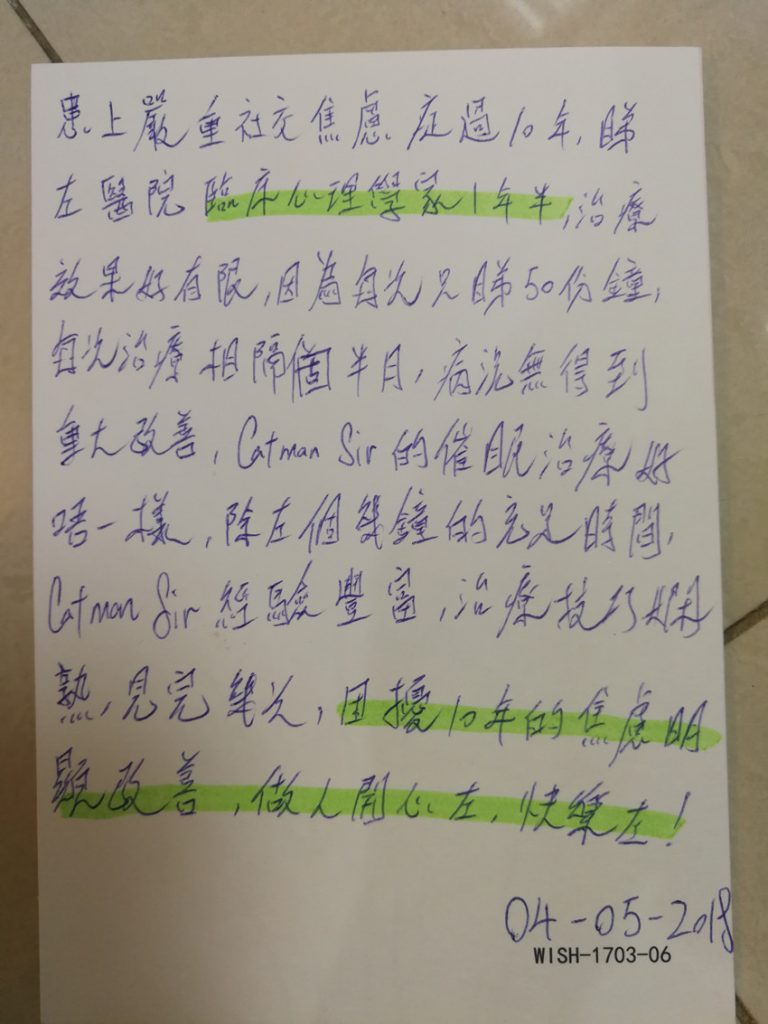 患上嚴重社交焦慮症過10年，睇
左醫院臨床心理學家1年半，治療
效果好有限，因為每次只睇50份鐘，
每次治療相隔個半月，病況無得到
重大改善，Catman Sir的催眠治療好
唔一樣，除左個幾鐘的充足時間，
Catman Sir 經驗豐富，治療技巧嫻
熟，見完幾次，困擾10年的焦慮明
顯改善，做人開心左，快樂左！
04-05-2018
WISH-1703-06